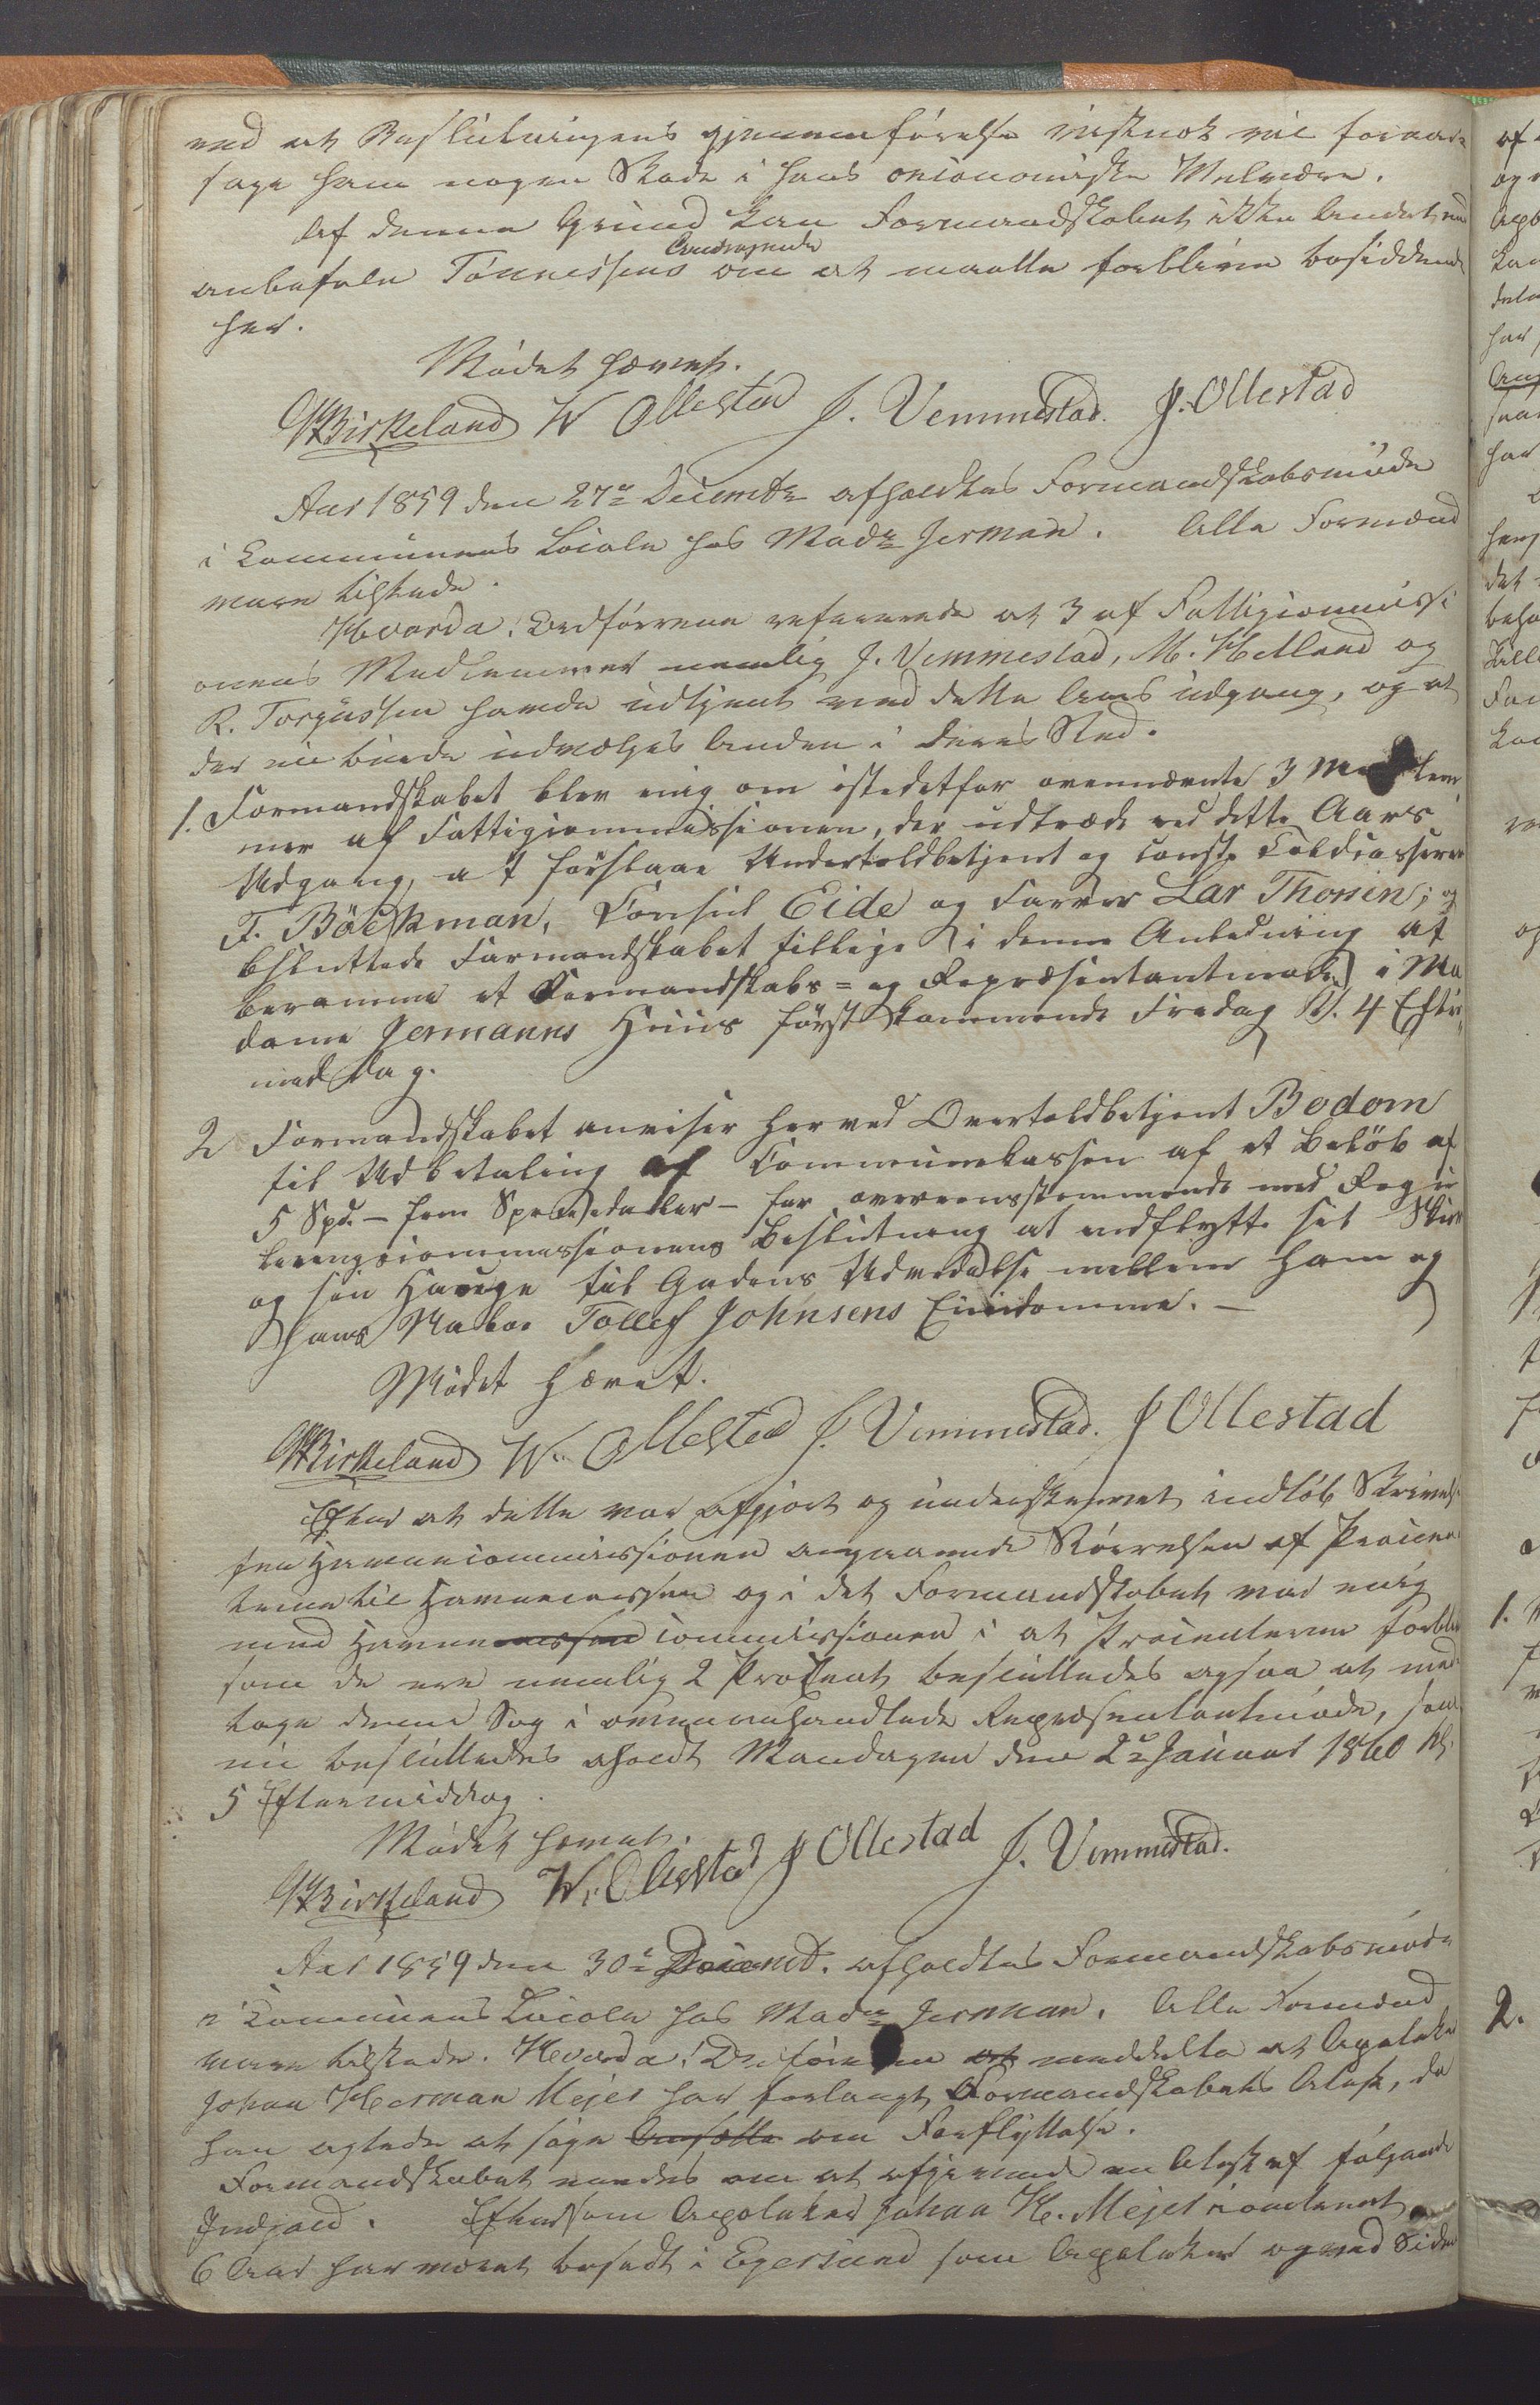 ved at Beslutningens gjennemførelse vistnok vil foraar-
sage ham nogen Skade i hans oeconomiske Velvære.
Af denne Grund kan Formandskabet ikke Andet end
anbefale Tønnessens Andragende om at maatte forblive bosiddende
her.
Mødet hævet.
Birkeland W Ollestad J. Vemmestad. J. Ollestad
Aar 1859 den 27de Decembr afholdtes Formandskabsmøde
i Communens Locale hos Made Jerman. Alle Formænd
vare tilstede.
Hvorda: Ordføreren refererede at 3 af Fattigcommissi
onens Medlemmer nemlig J. Vemmestad, M. Hetland og
R. Torgussen havde udtjent med dette Aars udgang, og at
der nu burde udvælges Anden i deres Sted.
1. Formandskabet blev enig om istedetfor ovennævnte 3 Medlem
mer af Fattigcommissionen, der udtræde ved dette Aars
Udgang, at förslaae Undertoldbetjent og const. Toldcasserer
F. Böckman, Consul Eide og Farver Lar Thorsen; og
besluttede Formandskabet tillige i denne Anledning at
beramme et Formandskabs= og Repræsentantmøde i Ma
dame Jermanns Huus förstkommende Fredag Kl. 4 Efter
middag.
2 Formandskabet anviser herved Overtoldbetjent Bodom
til Udbetaling af Communekassen af et Beløb af
5 Spd. – fem Speciedaler – for overeensstemmende med Regu
leringscommissionens Beslutning at indflytte sit
og sin Hauge til Gadens Udvidelse mellem ham og
hans Naboe Tollef Johnsens Eiendomme. –
Mødet hævet.
Birkeland W. Ollestad J. Vemmestad. J Ollestad
Efter at dette var afgjort og underskrevet indløb Skrivelse
fra Havnecommissionen angaaende Størrelsen af Procen
terne til Havnecassen og i det Formandskabet var enig
med Havnecassen commissionen i at Procenterne forbliver
som de ere nemlig 2 Procent besluttedes ogsaa at med
tage denne Sag i ovenomhandlede Repræsentantmøde, som
nu besluttedes aholdt Mandagen den 2de Januar 1860 Kl.
5 Eftermiddag.
Mødet hævet.
Birkeland W. Ollestad J Ollestad J. Vemmestad.
Aar 1859 den 30te Decembr. afholdtes Formandskabsmøde
i Communens Locale hos Made Jerman. Alle Formænd
vare tilstede. Hvorda: Ordføreren at meddelte at Apoteker
Johan Herman Mejer har forlangt Formandskabets Attest, da
han agtede at søge Ansætte om Forflyttelse.
Formandskabet enedes om at afgive en Attest af følgende
Indhold. Eftersom Apoteker Johan H. Mejer
6 Aar har været bosadt i Egersund som Apoteker og ved Siden